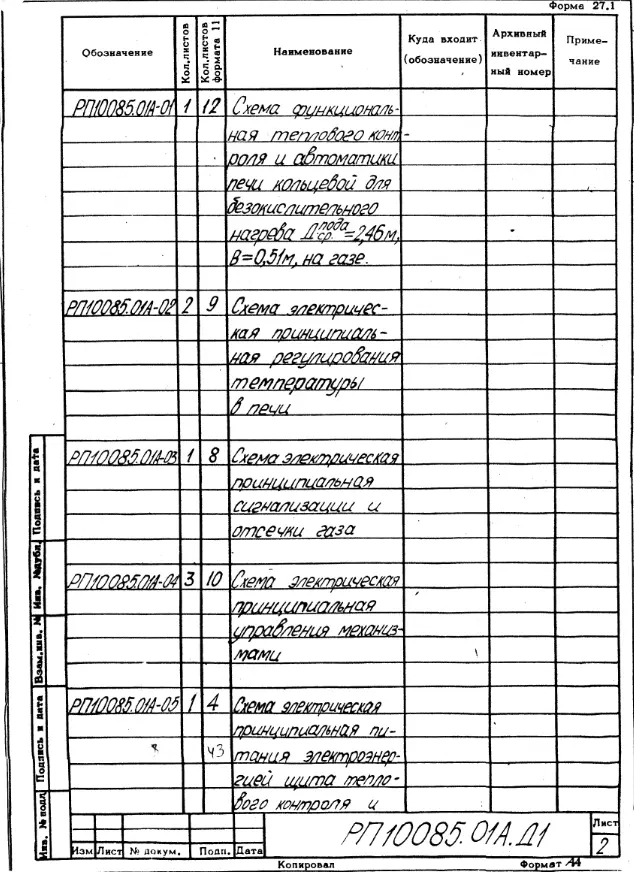 Форма 27.1
Обозначение
Кол.листов
Кол.листов формата 11
Наименование
Куда входит (обозначение)
Архивный инвентар-ный номер
Приме-чание
РП10085.01А-01 1 12 Схема функциональ-
ная теплового конт-
роля и автоматики
печи кольцевой для
безокислительного
нагрева Дср.пода=2,46м,
В=0,51м, на газе.
РП10085.01А-02 2 9 Схема электричес-
кая принципиаль-
ная регулирования
температуры
в печи
РП10085.01А-03 1 8 Схема электрическая
принципиальная
сигнализации и
отсечки газа
РП10085.01А-04 3 10 Схема электрическая
принципиальная
управления механиз-
мами
РП10085.01А-05 1 4 Схема электрическая
принципиальная пи-
43 тания электроэнер-
гией щита тепло-
вого контроля и
Инв. № подл.
Подпись и дата
Взам.инв. №
Инв. №дубл.
Подпись и дата
Изм Лист № докум. Подп. Дата
РП10085.01А.Д1
Лист
2
Копировал
Формат А4